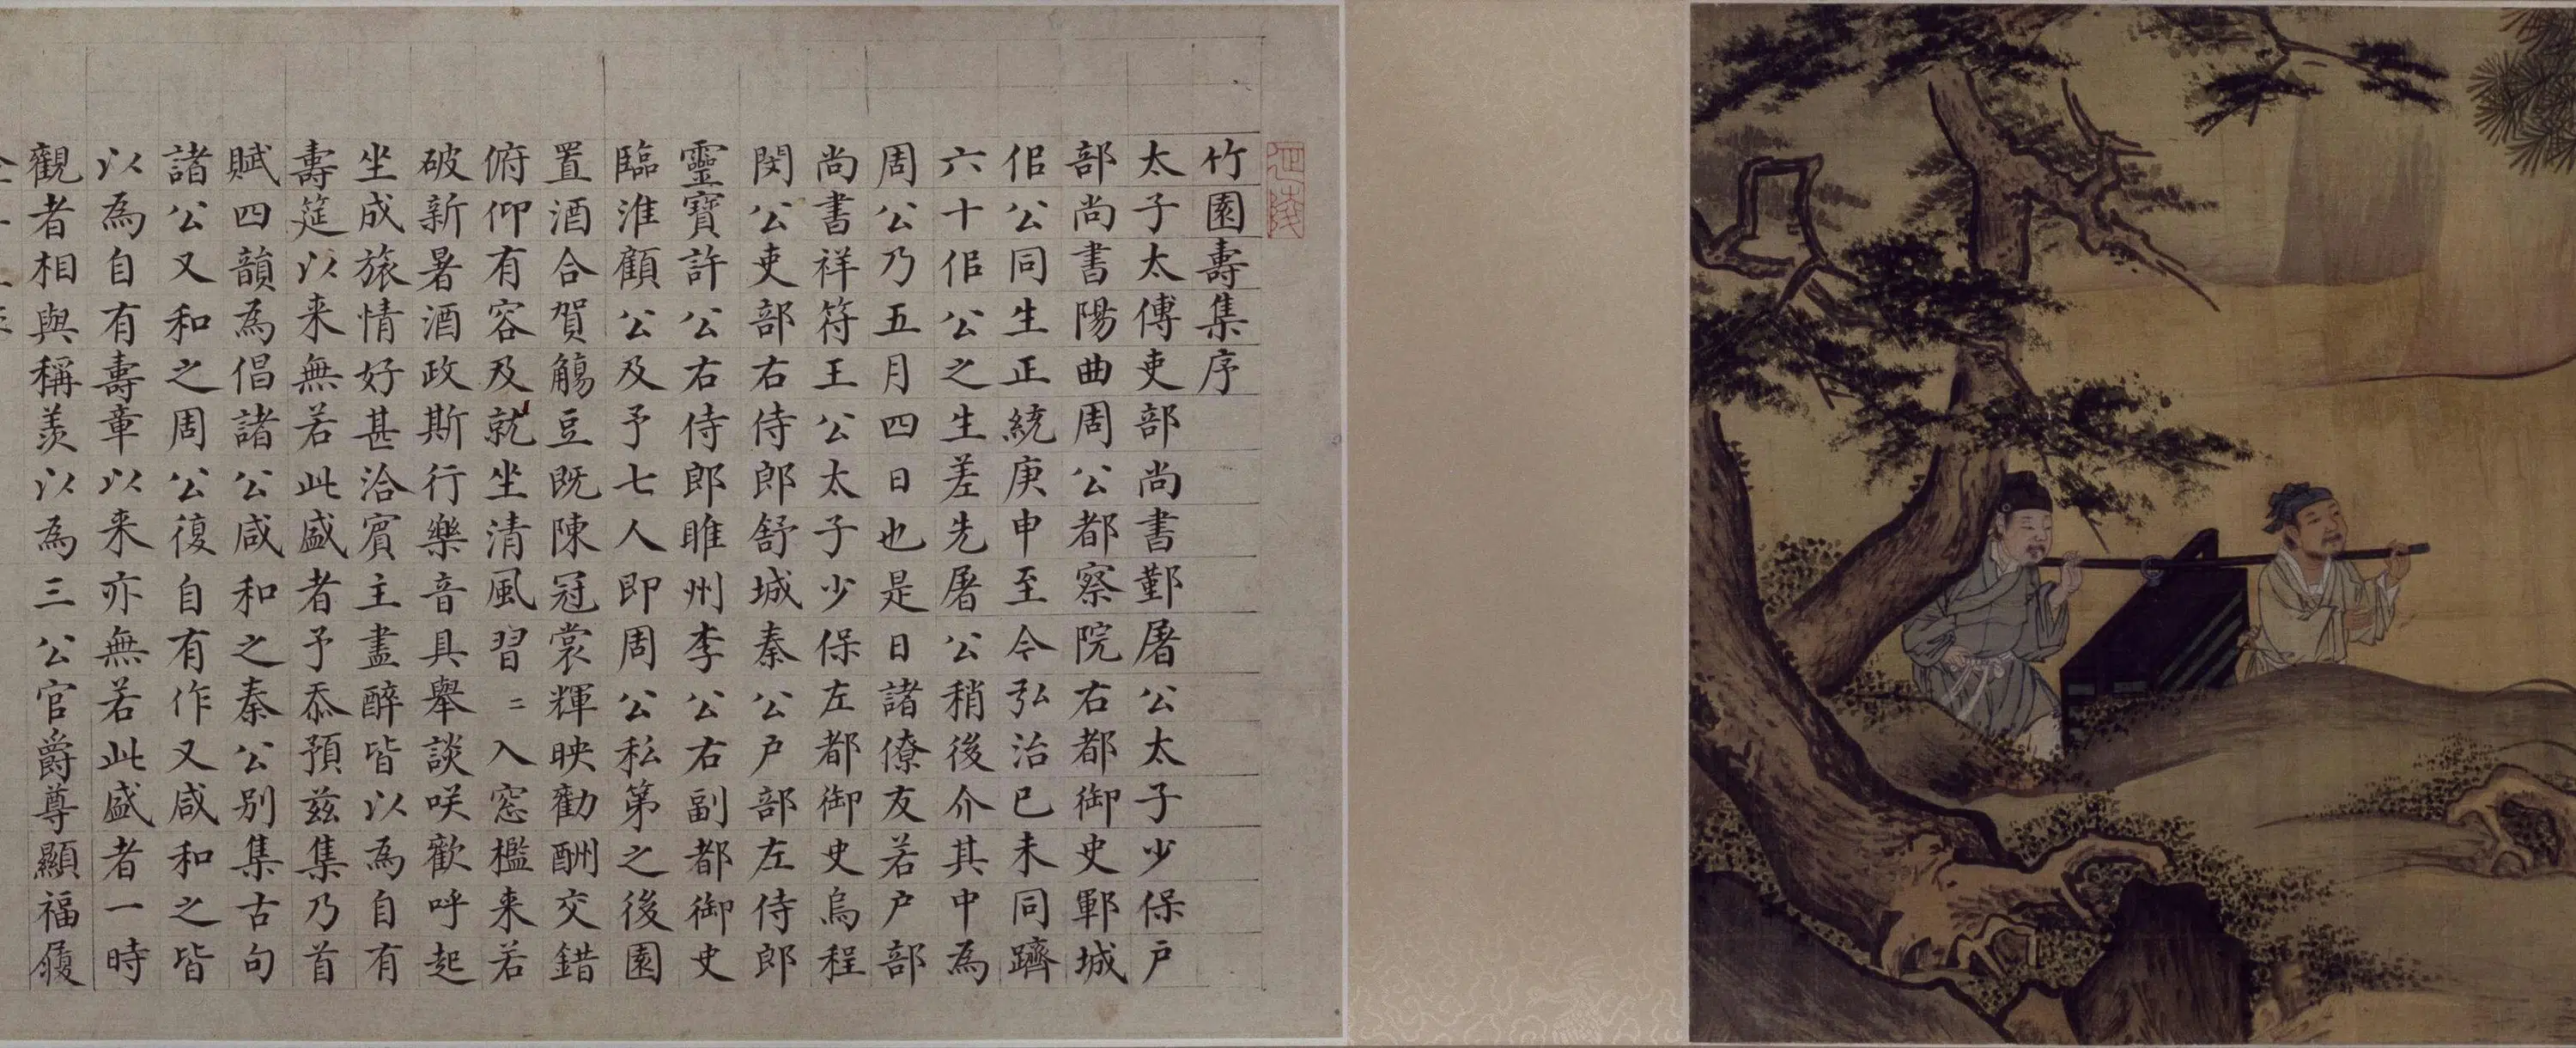 竹園壽集序
太子太傅吏部尚書鄞屠公太子少保戶
部尚書陽曲周公都察院右都御史鄆城
佀公同生正統庚申至今弘治己未同躋
六十佀公之生差先屠公稍後介其中為
周公乃五月四日也是日諸僚友若户部
尚書祥符王公太子少保左都御史烏程
閔公吏部右侍郎舒城秦公户部左侍郎
靈寶許公右侍郎睢州李公右副都御史
臨淮顧公及予七人即周公私第之後園
置酒合賀觴豆既陳冠裳輝映勸酬交錯
俯仰有容及就坐清風習〻入窓檻来若
破新暑酒政斯行樂音具舉談咲歡呼起
坐成旅情好甚洽賓主盡醉皆以為自有
壽筵以来無若此盛者予忝預兹集乃首
賦四韻為倡諸公咸和之秦公别集古句
諸公又和之周公復自有作又咸和之皆
以為自有壽章以来亦無若此盛者一時
觀者相與稱羡以為三公官爵尊顯福履